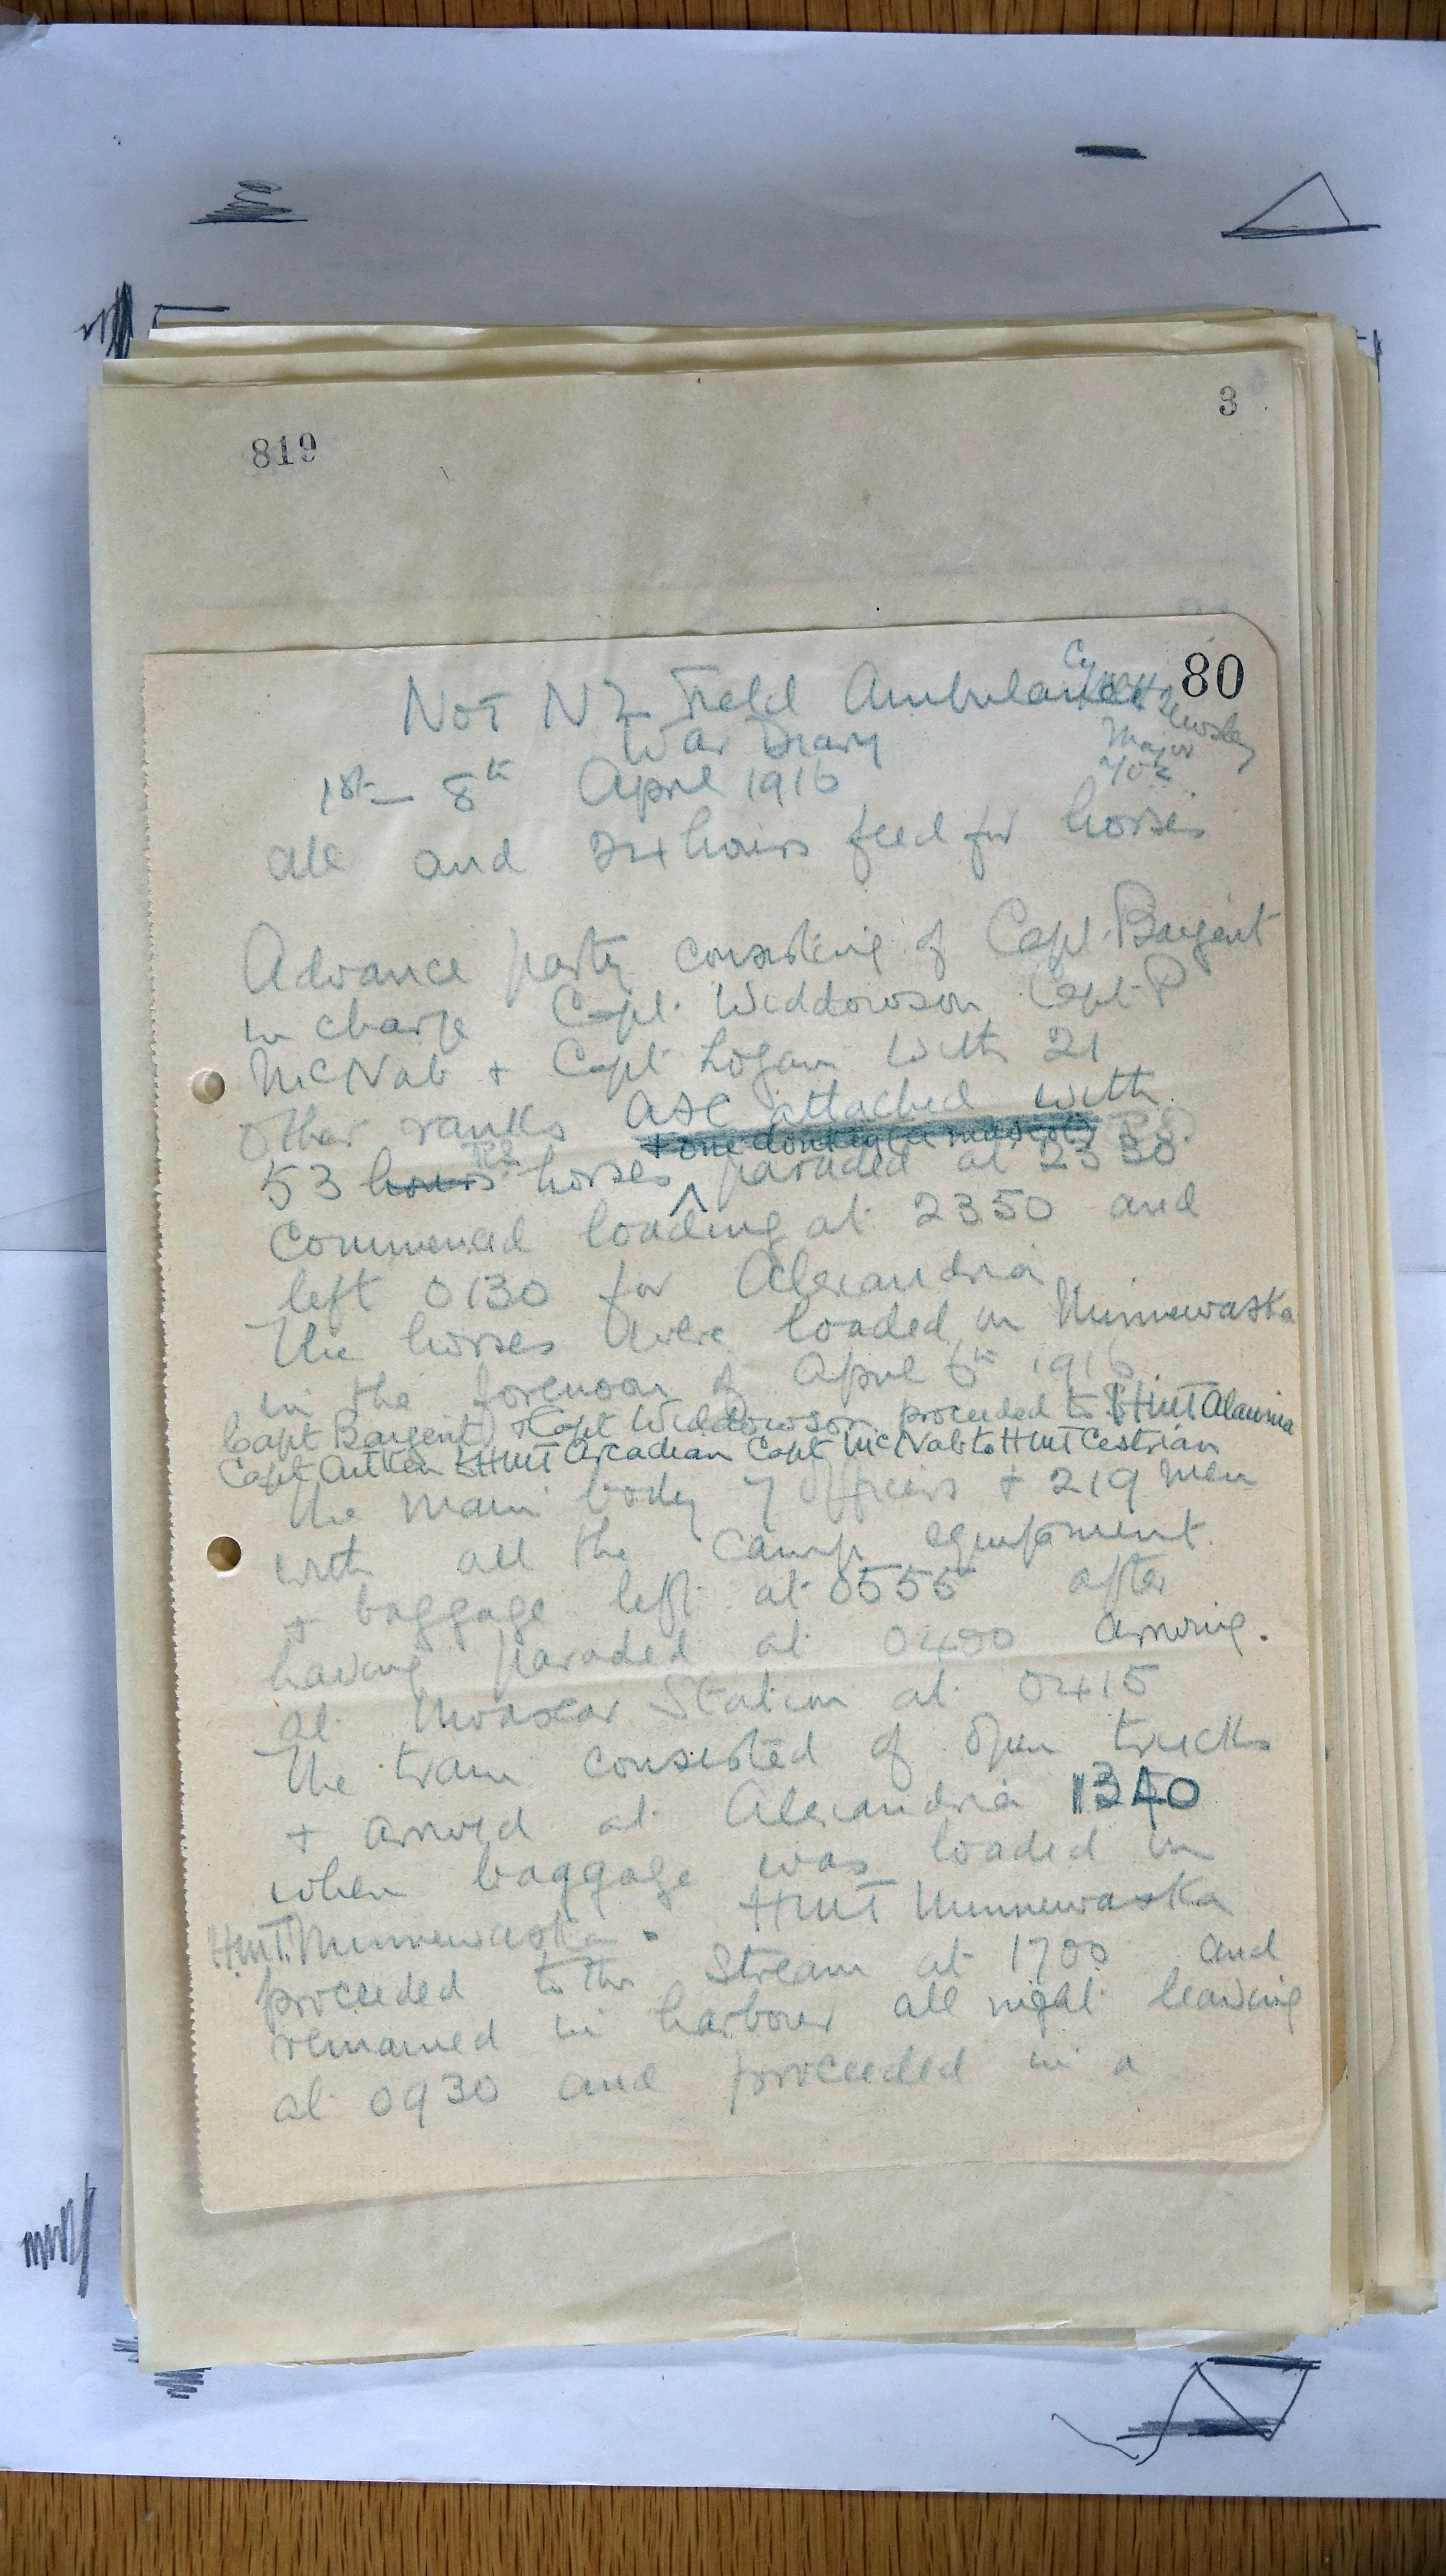 819
3
80
No 1 NZ Field Ambulance
War Diary
Major
1st – 8th April 1916
all and 24 hours feed for horses
Advance party consisting of Capt. Bargent
in charge Capt. Widdowson Capt. P
McNab + Capt Logan with 21
Other ranks ASC attached with
+ one donkey (a mascot)
53 hours horses paraded at 2330
Commenced loading at 2350 and
left 0130 for Alexandria
The horses were loaded in Minnewaska
in the forenoon of April 6th 1916
Capt Bargent + Capt Widdowson proceeded to HMT Alaunia
Capt Aitken to HMT Arcadian Capt McNab to HMT Cestrian
The main body 7 Officers + 219 men
with all the camp equipment
+ baggage left at 0555 after
having paraded at 0400 arriving.
at Moascar Station at 0415
The train consisted of open trucks
+ arrived at Alexandria 1340
when baggage was loaded in
HMT. Minnewaska. HMT Minnewaska
proceeded to the Stream at 1700 and
remained in harbour all night leaving
at 0930 and proceeded in a